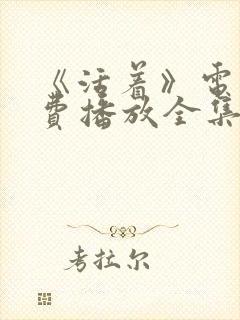 《活着》电
费播放全集
考拉尔